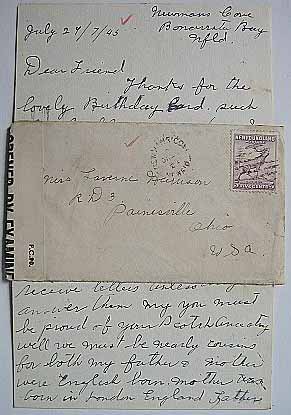 Newmans Cove
July 27/7/43 Bonavista Bay
Nfld
Dear Friend
Thanks for the
lovely Birthday Card, such
OPENED BY EXAMINER
P.C.90.
NEWFOUNDLAND
FIVE CENTS
Miss Laverne Davison
R D 3
Painesville
Ohio
U S a
receive letters unless
answer them my you must
be proud of your Scotch Ancestry
well we must be nearly cousins
for both my father & mother
were English born mother
born in London England Father